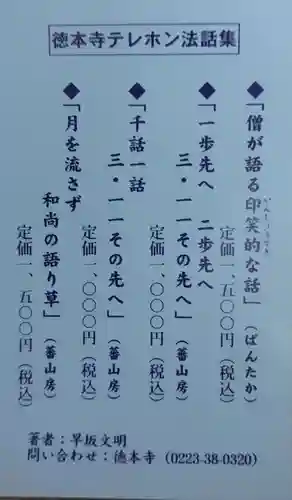 徳本寺テレホン法話集
◆「僧が語る印笑的な話」(ぱんたか)
定価一、五〇〇円(税込)
◆「一歩先へ 二歩先へ
三・一一その先へ」(蕃山房)
定価一、〇〇〇円(税込)
◆「千話一話
三・一一その先へ」(蕃山房)
定価一、〇〇〇円(税込)
◆「月を流さず
和尚の語り草」(蕃山房)
定価一、五〇〇円(税込)
著者:早坂文明
問い合わせ:徳本寺(0223-38-0320)